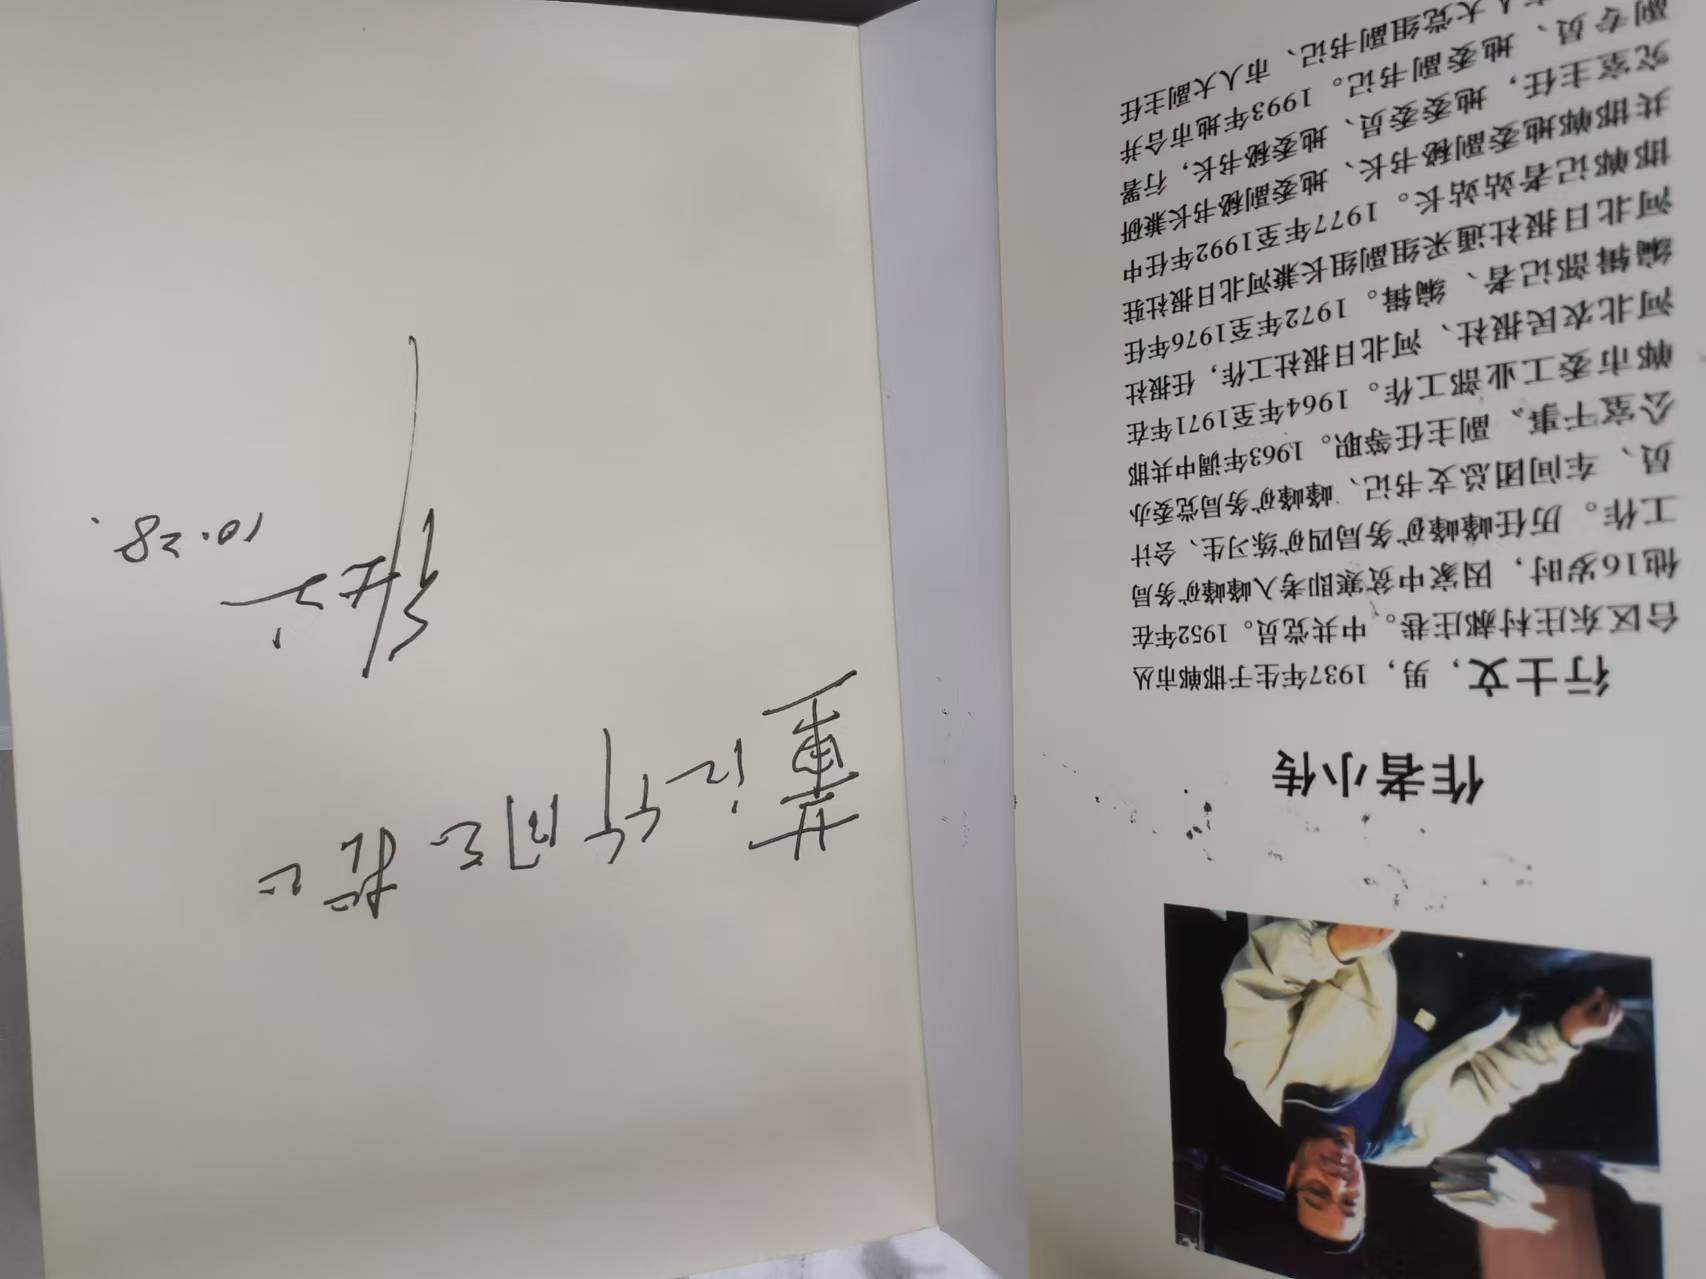 作者小传
行士文，男，1937年生于邯郸市丛
台区东庄村郝庄巷。中共党员。1952年在
他16岁时，因家中贫寒即考入峰峰矿务局
工作。历任峰峰矿务局四矿练习生、会计
员、车间团总支书记、峰峰矿务局党委办
公室干事、副主任等职。1963年调中共邯
郸市委工业部工作。1964年至1971年在
河北农民报社、河北日报社工作，任报社
编辑部记者、编辑。1972年至1976年任
河北日报社通采组副组长兼河北日报社驻
邯郸记者站站长。1977年至1992年任中
共邯郸地委副秘书长、地委副秘书长兼研
究室主任，地委委员、地委秘书长，行署
副专员、地委副书记。1993年地市合并
人大党组副书记、市人大副主任
董 同志指正
行士文
10.28.